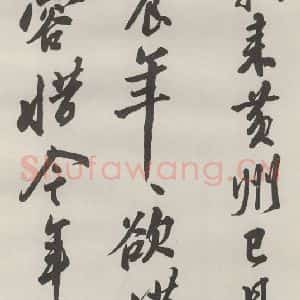 来黄州已
年、欲
容惜今年
Shufawang.cn